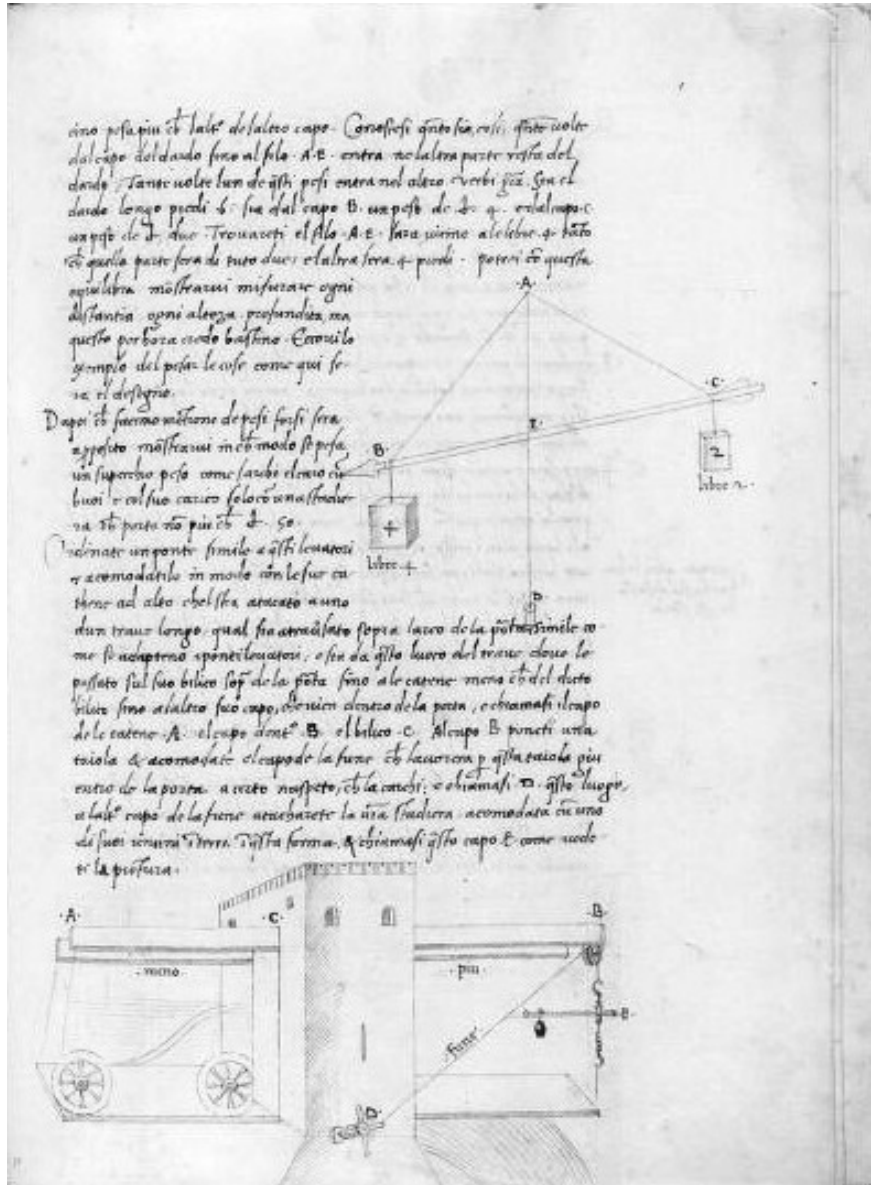 cino pesa piu ch̄ laltº de laltro capo. Conoscesi qnto sia, cosi: qnte uolte
dal capo del dardo sino al filo .A.E. entra ne laltra parte resta del
dardo. Tante uolte lun de q̄sti pesi entra nel altro. Verbi gra. Sia el
dardo longo piedi 6: sia dal capo B. un peso de £. 4. e dal capo .C.
un peso de £. due. Trouareti el filo .A.E. sara uicino a le libre .4. tāto
ch̄ quella parte sera di tuto due: e laltra sera .4. piedi. potrei cō questa
equilibra mostrarui misurare ogni
distantia ogni alteza profundita, ma
questo per hora credo bastino. Eccoui lo
exemplo del pesar le cose come qui se-
ra el desegno.
Dapoi ch̄ facemo mētione de pesi forsi sera
apposito mōstrarui in ch̄ modo se pesa
un superchio peso come sarebe el caro cū
buoi e col suo carico solo cō una stadie-
ra ch̄ porta nō piu ch̄ £. 50.
Ordinate un ponte simile a q̄sti leuatori
e acomodatilo in modo con le sue ca
thene ad alto chel stia atacato a uno
dun traue longo, qual sia atrauersato sopra larco de la porta, simile co
me se adapteno i ponti leuatori, e sia da q̄sto luoco del traue doue le
possato sul suo bilico sop̄ de la porta sino a le catene meno ch̄ del dicto
bilico sino a laltro suo capo, che uien dentro de la porta, e chiamasi il capo
de le catene .A. el capo dentº .B. el bilico .C. Al capo B poneti una
taiola & acomodate el capo de la fune ch̄ lauorera p̄ q̄sta taiola piu
entro de la porta a certo naspeto, ch̄ la carchi: e chiamasi .D. q̄sto luogo,
a laltº capo de la fune atacharete la ura stadiera acomodata cū uno
de suoi uncini ī terra ī q̄sta forma. & chiamasi q̄sto capo E come uede
ti la pictura.
.A.
.C.
B.
E
2
libre 2.
4
libre .4.
D.
.A.
.C.
.B.
meno
piu
fune
E
D.